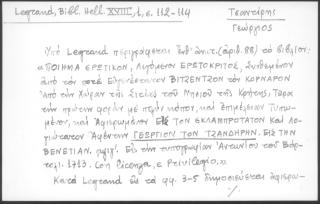 Legrand, Bibl. Hell. XVIII, 1, σ. 112-114
Τζαντάρης
Γεώργιος
Ὑπὸ Legrand περιγράφεται ὑπ' ἀριθ. (ἀριθ. 88) τὸ βιβλίον:
«ΠΟΙΗΜΑ ΕΡΩΤΙΚΟΝ, Λεγόμενον ΕΡΩΤΟΚΡΙΤΟΣ, Συνθεμένον
ἀπὸ τὸν ποτὲ Εὐγενέστατον ΒΙΤΖΕΝΤΖΟΝ τὸν ΚΟΡΝΑΡΟΝ
Ἀπὸ τὴν Χώραν τῆς Σιτείας τοῦ Νησιοῦ τῆς Κρήτης. Τώρα
τὴν πρώτην φορὰν μὲ πολὺν κόπον, καὶ ἐπιμέλειαν Τυπω-
μένον, καὶ Ἀφιερωμένον ΕΙΣ ΤΟΝ ΕΚΛΑΜΠΡΟΤΑΤΟΝ Καὶ Λο-
γιώτατον Ἀφέντην ΓΕΩΡΓΙΟΝ ΤΟΝ ΤΖΑΝΔΗΡΗΝ. ΕΙΣ ΤΗΝ
ΒΕΝΕΤΙΑΝ. αψιγ'. Εἰς τὴν τυπογραφίαν Ἀντωνίου τοῦ Βόρ-
τολι. 1713. Con Licenza, e Privilegio.»
Κατὰ Legrand εἰς τὰ φφ. 3-5 δημοσιεύεται ἀφιερω-